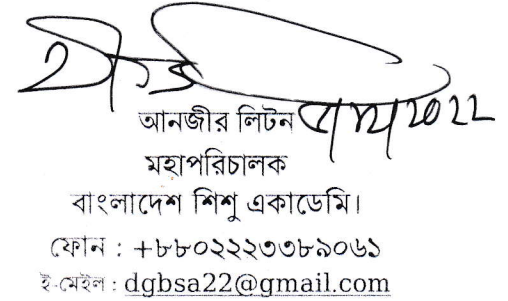 আনজীর লিটন
মহাপরিচালক
বাংলাদেশ শিশু একাডেমি।
ফোন : +৮৮০২২২৩৩৮৯০৬১
ই-মেইল : dgbsa22@gmail.com